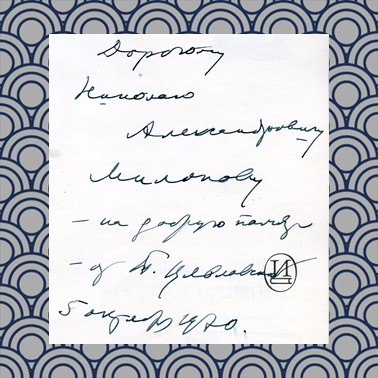 Дорогому
Николаю
Александровичу
Милонову
– на добрую память
– от Т. Цявловской
5 октября 1970.